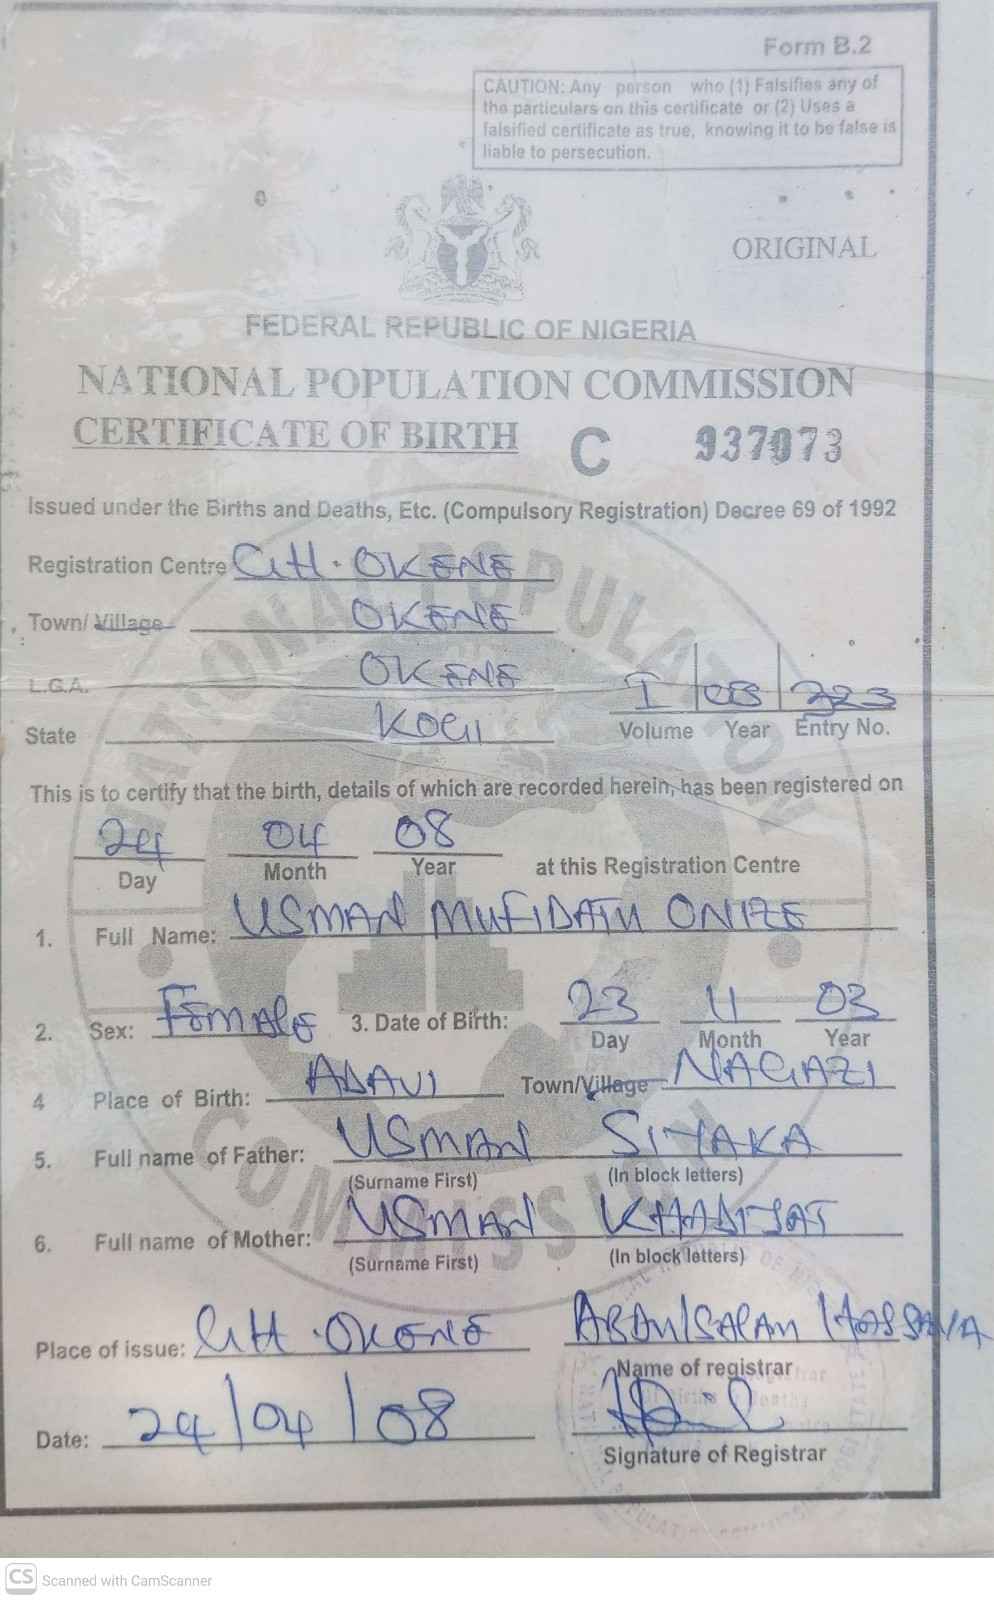 Form B.2
CAUTION: Any person who (1) Falsifies any of
the particulars on this certificate or (2) Uses a
falsified certificate as true, knowing it to be false is
liable to persecution.
ORIGINAL
FEDERAL REPUBLIC OF NIGERIA
NATIONAL POPULATION COMMISSION
CERTIFICATE OF BIRTH C 937073
Issued under the Births and Deaths, Etc. (Compulsory Registration) Decree 69 of 1992
Registration Centre GH. OKENE
Town/ Village OKENE
L.G.A. OKENE
State KOGI
I 08 323
Volume Year Entry No.
This is to certify that the birth, details of which are recorded herein, has been registered on
24 04 08
Day Month Year at this Registration Centre
1. Full Name: USMAN MUFIDATU ONIZE
2. Sex: Female 3. Date of Birth: 23 11 03
Day Month Year
4 Place of Birth: ADAVI Town/Village NAGAZI
5. Full name of Father: USMAN SIYAKA
(Surname First) (In block letters)
6. Full name of Mother: USMAN KHADIJAT
(Surname First) (In block letters)
Place of issue: GH. OKENE ABDULSALAM HASSANA
Name of registrar
Date: 24/04/08
Signature of Registrar
NATIONAL POPULATION
COMMISSION
CS Scanned with CamScanner